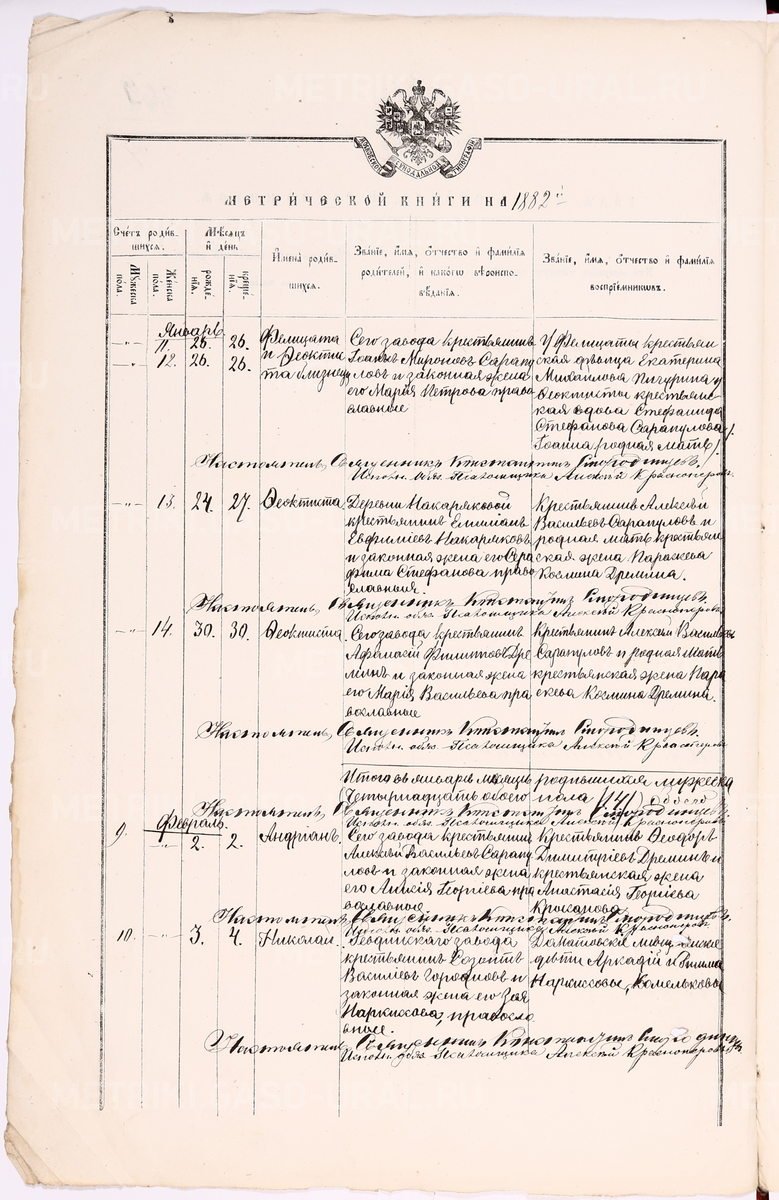 METRIKI.GASO-URAL.RU
МОСКОВСКОЙ СѴНОДАЛЬНОЙ ТИПОГРАФІИ
МЕТРИ́ЧЕСКОЙ КНИ́ГИ НА 1882 й
Сче́тъ роди́в-
шихся.
Му́жеска
по́ла.
Же́нска
по́ла.
Мѣ́сяцъ
и́ де́нь
рожде́-
нїя.
креще́-
нїя.
И́мена роди́в-
шихся.
Зва́нїе, и́мя, о́тчество и́ фами́лїя
роди́телей, и́ како́гѡ вѣроиспо-
вѣ́данїя.
Зва́нїе, и́мя, о́тчество и́ фами́лїя
воспрїе́мникѡвъ.
Январь
11. 26. 26. Фелицата
12. 26. 26. и Ѳеоктис
та близнецы
Сего завода крестьянинъ
Іоаннъ Мироновъ Сарапу
ловъ и законная жена
его Марія Петрова право
славные
У Фелицаты крестьян
ская дѣвица Екатерина
Михайлова Пигурина у
Ѳеоктисты крестьян-
ская вдова Стефанида
Стефанова Сарапулова /
Іоанна родная мать /.
Настоятель, Священникъ Константинъ Смородинцевъ.
Исполн. обяз. Псаломщика Алексѣй Красноперовъ.
13. 24. 27. Ѳеоктиста.
Деревни Накаряковой
крестьянинъ Емиліанъ
Евфиміевъ Накаряковъ
и законная жена его Сера
фима Стефанова право
славныя.
Крестьянинъ Алексѣй
Васильевъ Сарапуловъ и
родная мать крестьян
ская жена Параскева
Космина Дремина.
Настоятель, Священникъ Константинъ Смородинцевъ.
Исполн. обяз. Псаломщика Алексѣй Красноперовъ.
14. 30. 30. Ѳеоктиста.
Сего завода крестьянинъ
Афанасій Филипповъ Дре
минъ и законная жена
его Марія Васильева пра
вославные
Крестьянинъ Алексѣй Васильевъ
Сарапуловъ и родная мать
крестьянская жена Пара
скева Космина Дремина.
Настоятель, Священникъ Константинъ Смородинцевъ.
Исполн. обяз. Псаломщика Алексѣй Красноперовъ
Итого въ январѣ мѣсяцѣ родившихся мужеска
Четырнадцать обоего пола (14) обоего
Настоятель, Священникъ Константинъ Смородинцевъ.
Исполн. обяз. Псаломщика Алексѣй Красноперовъ.
Февраль.
9. 2. 2. Андріанъ.
Сего завода крестьянинъ
Алексѣй Васильевъ Сарапу
ловъ и законная жена
его Анисія Георгіева пра
вославные
Крестьянинъ Ѳеодоръ
Димитріевъ Дреминъ и
крестьянская жена
Анастасія Георгіева
Крюханова.
Настоятель, Священникъ Константинъ Смородинцевъ.
Исполн. обяз. Псаломщика Алексѣй Красноперовъ.
10. 3. 4. Николай.
завода
крестьянинъ Созонтъ
Василіевъ Городиловъ и
законная жена его Зоя
Наркиссова, правосла
вные.
дѣти Аркадій и Римма
Наркиссовы,
Настоятель, Священникъ Константинъ Смородинцевъ
Исполн. обяз. Псаломщика Алексѣй Красноперовъ